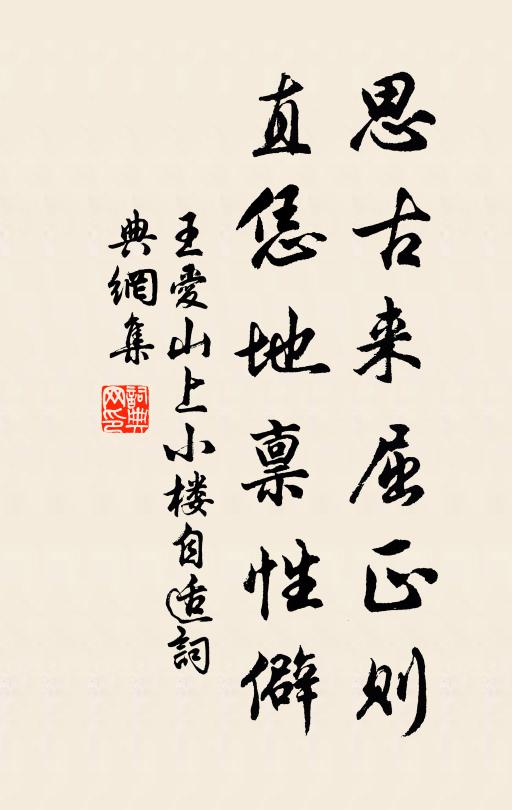 思古来屈正则
直恁地禀性僻
王爱山上小楼自适詞
典網集
詞典
网印